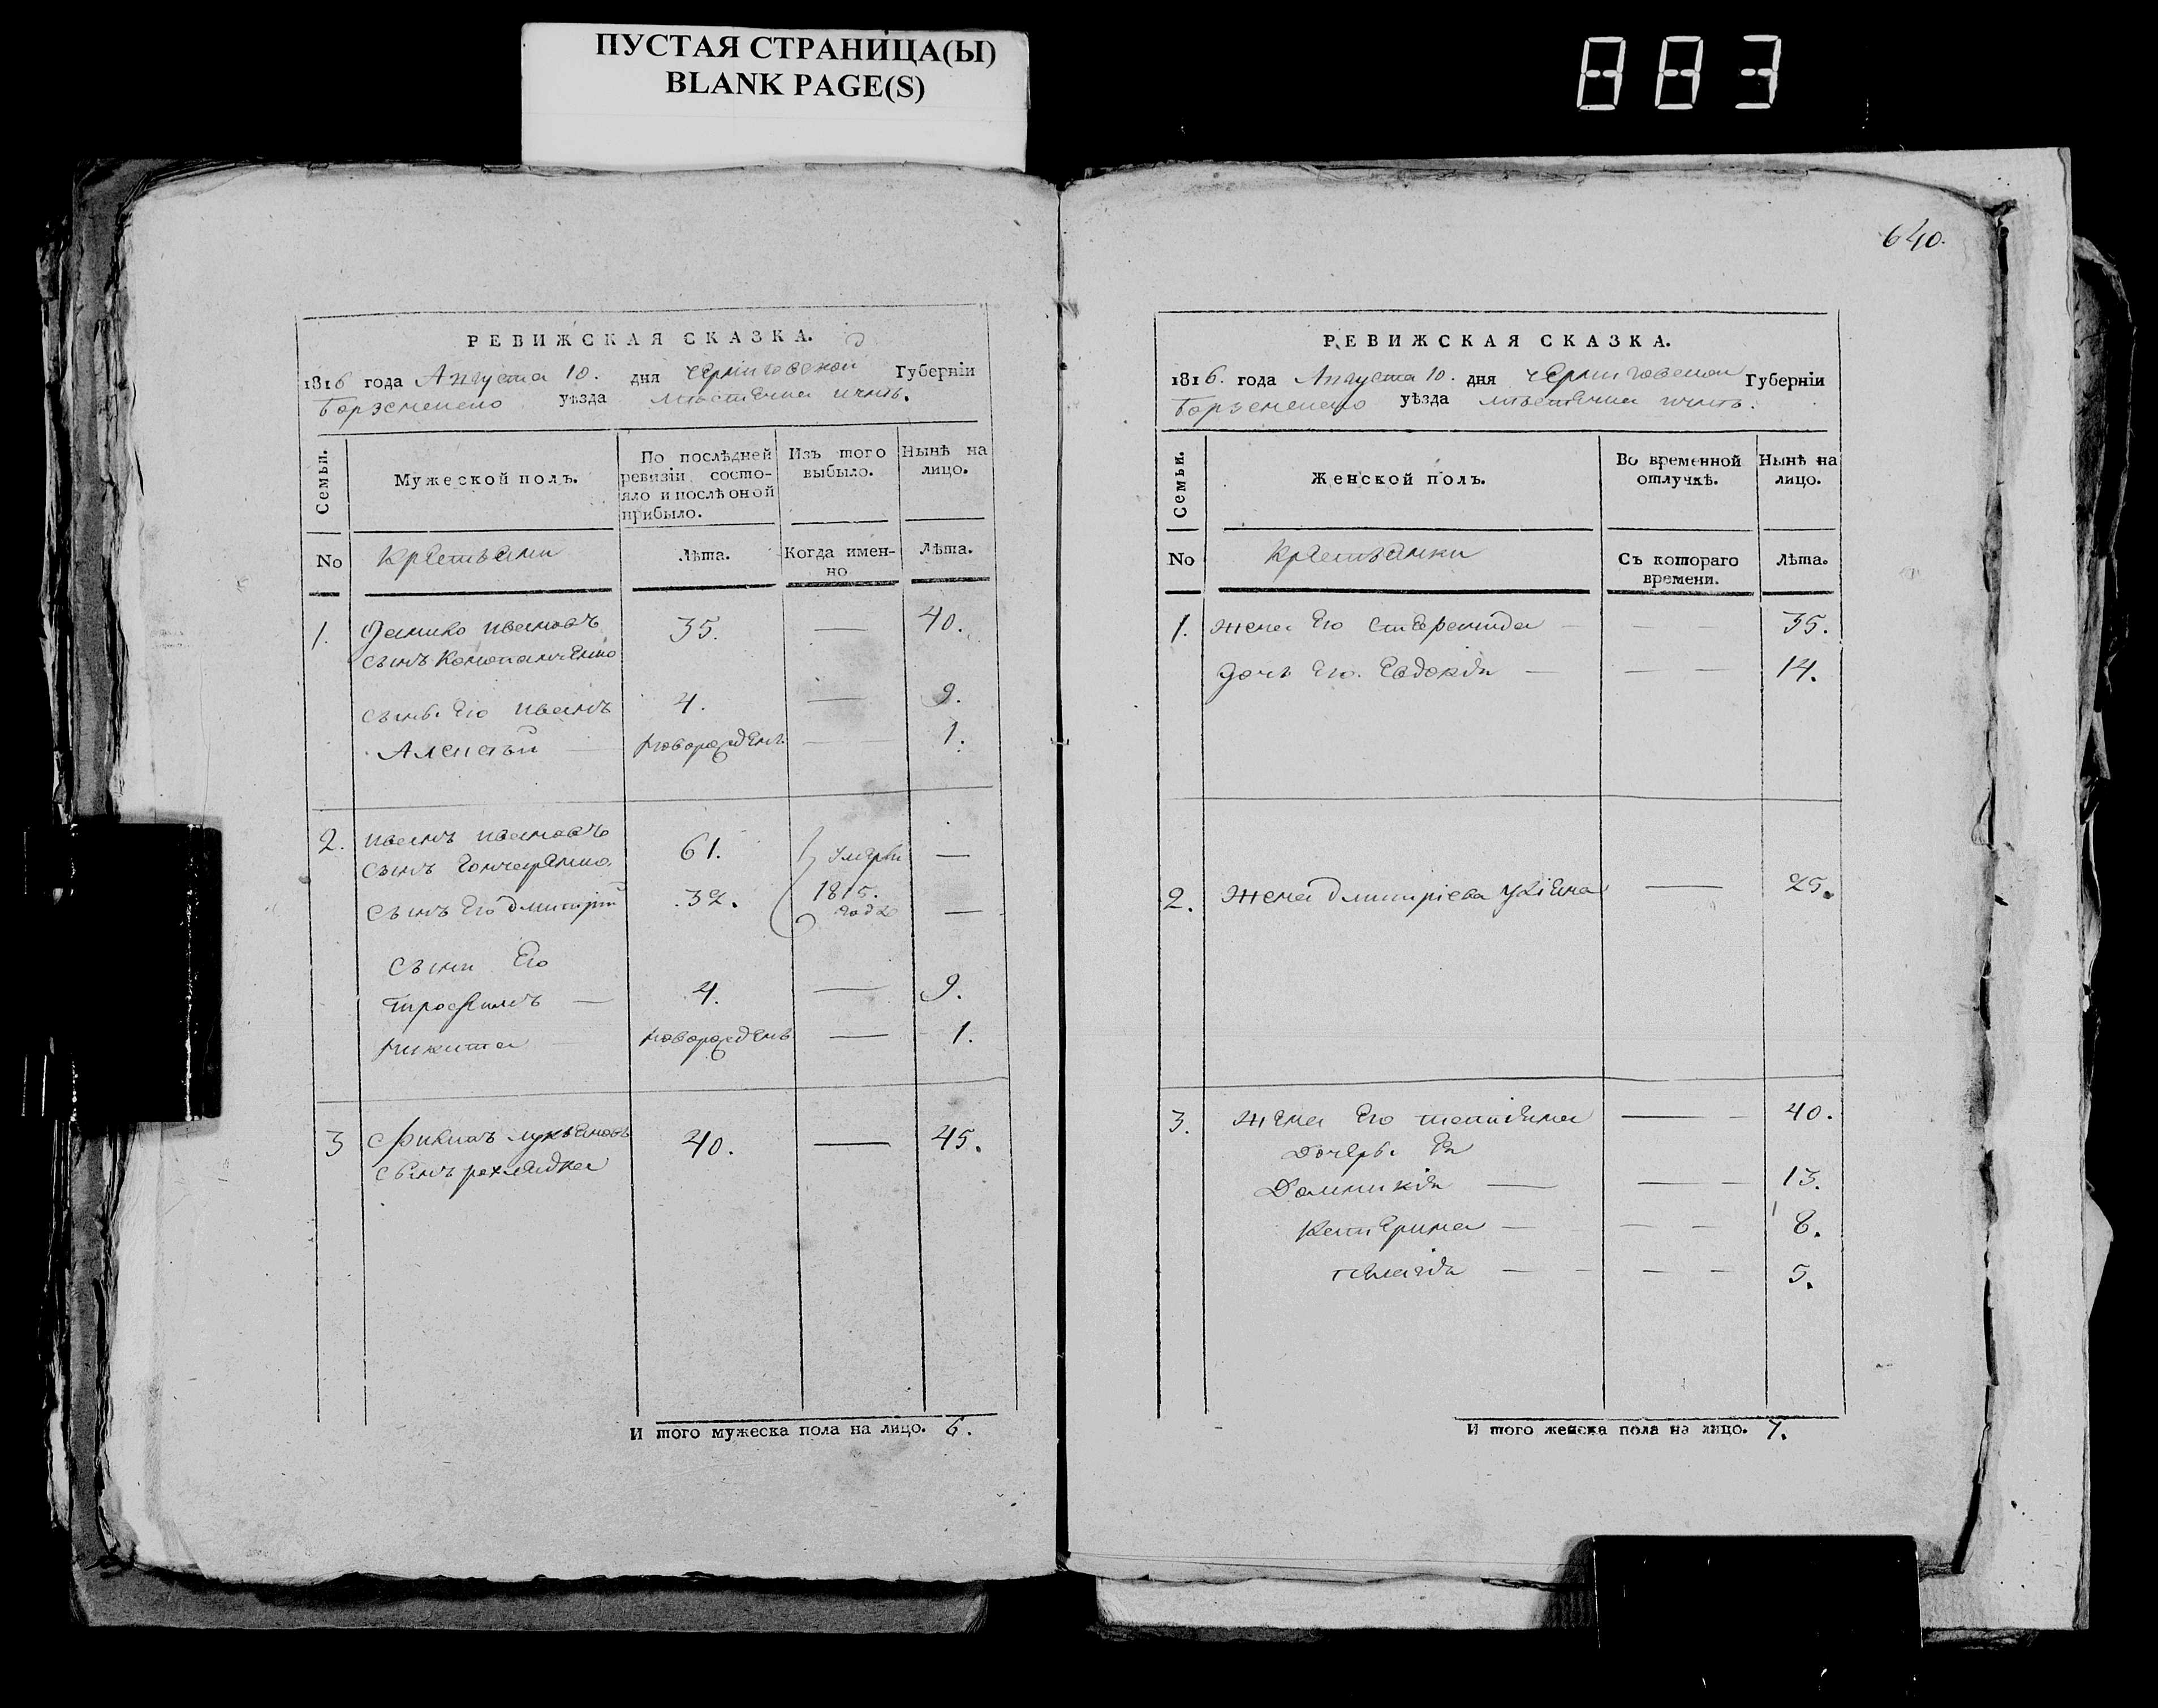 ПУСТАЯ СТРАНИЦА(Ы)
BLANK PAGE(S)
883
640.
РЕВИЖСКАЯ СКАЗКА.
1816 года Августа 10. дня Черниговской Губерніи
Борзенского уѣзда местечка ични.
Семьи.
Мужеской полъ.
По послѣдней
ревизіи состо-
яло и послѣ оной
прибыло.
Изъ того
выбыло.
Нынѣ на
лицо.
No крестьяни
Лѣта.
Когда имен-
но
Лѣта.
1. Данило ивановъ 35. — 40.
сынъ Конопанченко
сынъ Его иванъ 4. — 9.
Алексъй — новорожденъ — 1.
2. иванъ ивановъ 61. умерли —
сынъ Гончаренко
сынъ Его Дмитрій 32. 1815. года —
сыни Его
трофимъ — 4. — 9.
никита — новорожденъ — 1.
3 Филипъ лукьяновъ 40. — 45.
сынъ рехлядка
И того мужеска пола на лицо. 6.
РЕВИЖСКАЯ СКАЗКА.
1816. года Августа 10. дня Черниговской Губерніи
Борзенского уѣзда местечка ични.
Семьи.
Женской полъ.
Во временной
отлучкѣ.
Нынѣ на
лицо.
No крестьянки
Съ котораго
времени.
Лѣта.
1. жена Его — — — 35.
дочь Его Евдокія — — — 14.
2. жена Дмитріева уліяна — 25.
3. жена Его татіяна — - 40.
Дочери Ея
Домникія — — - 13.
Катерина — — — 8.
пелагія — - — — 5.
И того женска пола на лицо. 7.